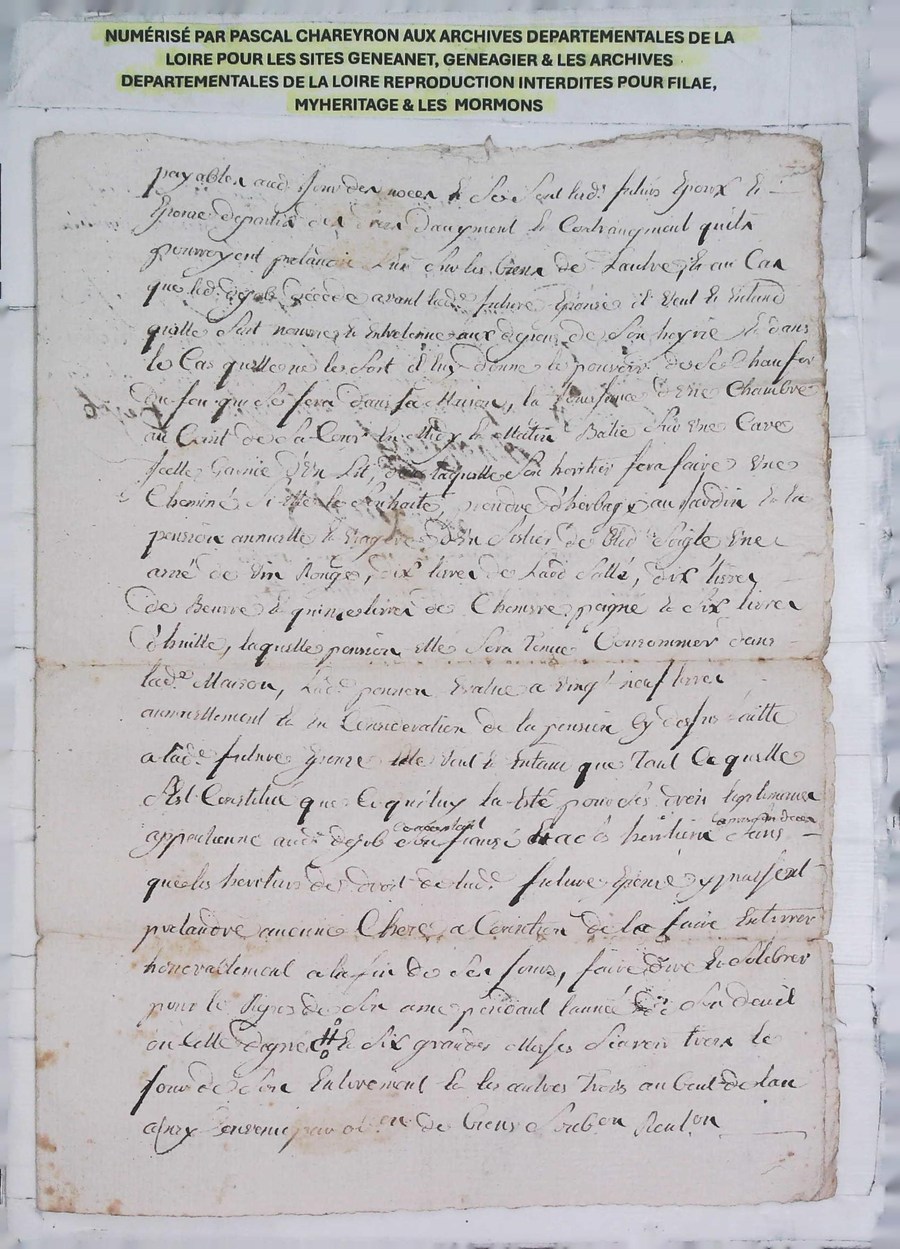 NUMÉRISÉ PAR PASCAL CHAREYRON AUX ARCHIVES DEPARTEMENTALES DE LA
LOIRE POUR LES SITES GENEANET, GENEAGIER & LES ARCHIVES
DEPARTEMENTALES DE LA LOIRE REPRODUCTION INTERDITES POUR FILAE,
MYHERITAGE & LES MORMONS
payables aud. Jour des noces & se sont lad. futurs Epoux &
Epouse departis des d'augment & Contraugment quils
pourroyent pretandre l'un sur les biens de Lautre, & au Cas
que led. dejob décede avant lad.e future Epouse il veut & Entand
quelle soit nourrie & Entretenue aux depens de son hoyrie & dans
le Cas quelle ne le soit il luy donne le pouvoir de se Chaufer
du feu qui se fera dans sa Maison, la Jouissance d'une Chambre
au de sa Cour Batie sur une Cave
Icelle Garnie d'un Lit, laquelle son heritier fera faire une
Cheminé si elle le souhaite, prendre d'herbage au Jardin & la
pension annuelle & d'un de bled soigle une
ané de vin Rouge, dix livres de Lard sallé, dix livres
de Beurre & quinze livres de Chanvre peigné & dix livres
d'huille, laquelle pension elle sera tenue Consommer dans
lad.e Maison, lad. pension Evalué a vingt neuf livres
annuellement & en Consideration de la pension Cy dessus faitte
a lad.e future Epouse veut & Entand que tout Ce quelle
s'Est Constitué que Ce qui luy a Esté pour ses droits
appartienne aud. dejob son fiancé & a ses heritiers sans
que les heretiers de droit de lad.e future Epouse y puissent
pretandre aucune Chose, a Condition de la faire Enterrer
honorablement a la fin de ses Jours, faire dire & Celebrer
pour le Repos de son ame pendant l'année de son deuil
six grandes Messes sçavoir trois le
Jour de son Enterrement & les autres trois au bout de l'an
ainsy Convenu de biens